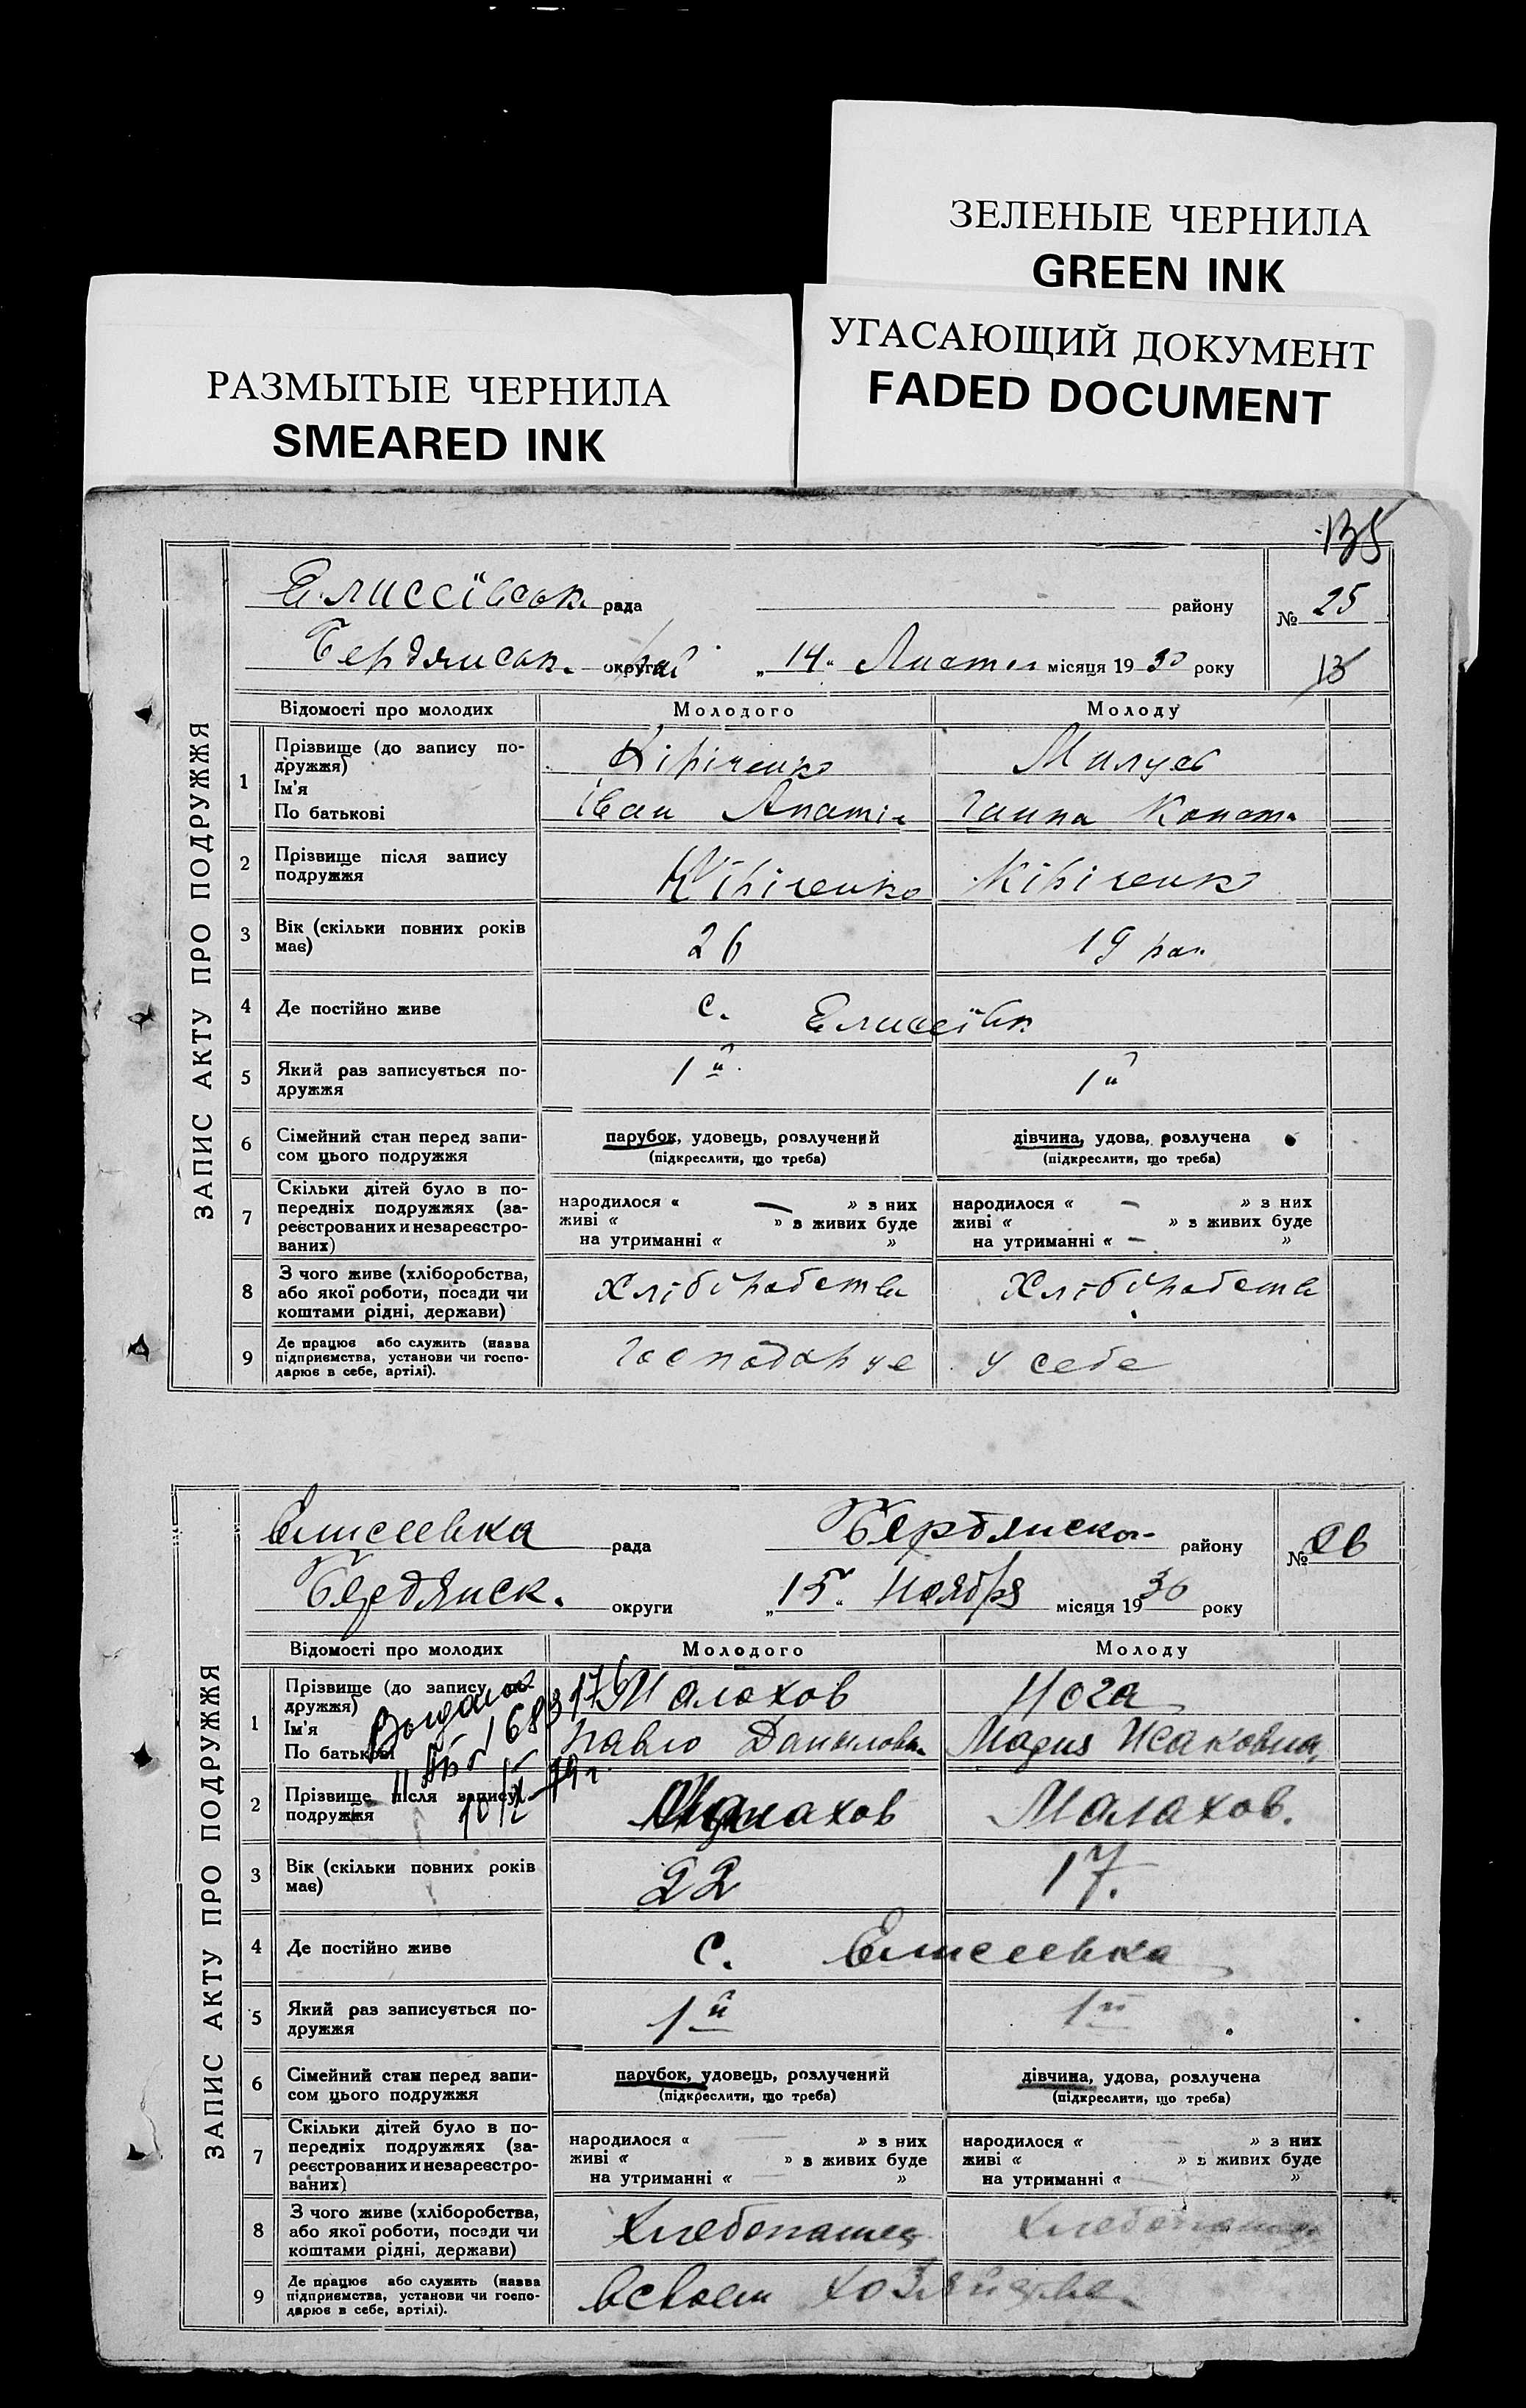 ЗЕЛЕНЫЕ ЧЕРНИЛА
GREEN INK
УГАСАЮЩИЙ ДОКУМЕНТ
FADED DOCUMENT
РАЗМЫТЫЕ ЧЕРНИЛА
SMEARED INK
135
Елиссївськ. рада району № 25
Бердянськ. округи „14“ Листоп місяця 1930 року 13
ЗАПИС АКТУ ПРО ПОДРУЖЖЯ
Відомості про молодих Молодого Молоду
1 Прізвище (до запису по-
дружжя)
Ім'я
По батькові
Кіріченко
Іван
Ганна
2 Прізвище після запису
подружжя
Кіріченко Кіріченко
3 Вік (скільки повних років
має)
26 19 рок
4 Де постійно живе с. Елиссївк
5 Який раз записується по-
дружжя
1й 1й
6 Сімейний стан перед запи-
сом цього подружжя
парубок, удовець, розлучений дівчина, удова, розлучена
(підкреслити, що треба) (підкреслити, що треба)
7 Скільки дітей було в по-
передніх подружжях (за-
реєстрованих и незареєстро-
ваних)
народилося « — » з них
живі « » з живих буде
на утриманні « »
народилося « — » з них
живі « » з живих буде
на утриманні « — »
8 З чого живе (хліборобства,
або якої роботи, посади чи
коштами рідні, держави)
9 Де працює або служить (назва
підприємства, установи чи госпо-
дарює в себе, артілі).
Господарує у себе
Елисеевка рада Бердянско- району № 26
Бердянск. округи „15“ Ноября місяця 1930 року
ЗАПИС АКТУ ПРО ПОДРУЖЖЯ
Відомості про молодих Молодого Молоду
1 Прізвище (до запису по-
дружжя)
Ім'я
По батькові
Малахов Нога
Павло Данилов. Мария Исаковна
2 Прізвище після запису
подружжя
Малахов Малахов.
3 Вік (скільки повних років
має)
22 17.
4 Де постійно живе с. Елисеевка
5 Який раз записується по-
дружжя
1й 1й
6 Сімейний стан перед запи-
сом цього подружжя
парубок, удовець, розлучений дівчина, удова, розлучена
(підкреслити, що треба) (підкреслити, що треба)
7 Скільки дітей було в по-
передніх подружжях (за-
реєстрованих и незареєстро-
ваних)
народилося « — » з них
живі « » з живих буде
на утриманні « — »
народилося « — » з них
живі « » з живих буде
на утриманні « — »
8 З чого живе (хліборобства,
або якої роботи, посади чи
коштами рідні, держави)
Хлебопашец Хлебопашец
9 Де працює або служить (назва
підприємства, установи чи госпо-
дарює в себе, артілі).
в своем хозяйстве